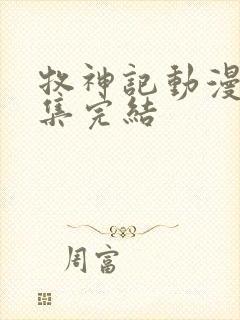 牧神記動漫
集完結
周富